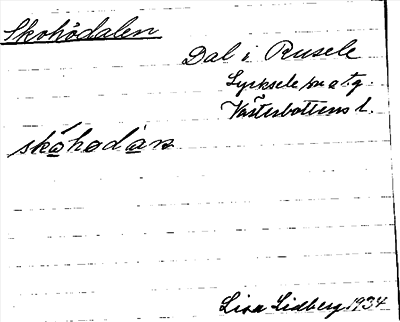 Skohödalen
Dal i Rusele
Lycksele sn o tg.
Västerbottens l.
skóhodàn
Lisa Lidberg 1934